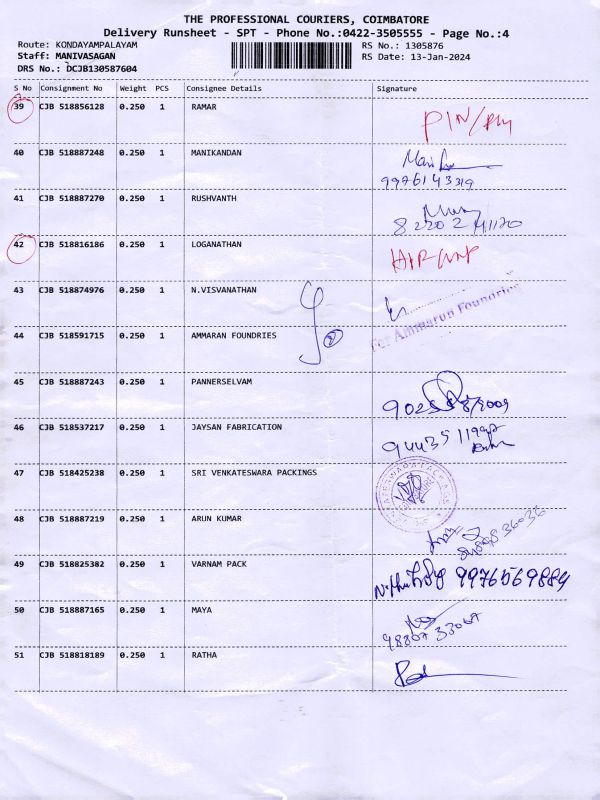 THE PROFESSIONAL COURIERS, COIMBATORE
Delivery Runsheet - SPT - Phone No.:0422-3505555 - Page No.:4
Route: KONDAYAMPALAYAM RS No.: 1305876
Staff: MANIVASAGAN RS Date: 13-Jan-2024
DRS No.: DCJB130587604
S No Consignment No Weight PCS Consignee Details Signature
39 CJB 518856128 0.250 1 RAMAR
40 CJB 518887248 0.250 1 MANIKANDAN
9976143319
41 CJB 518887270 0.250 1 RUSHVANTH
42 CJB 518816186 0.250 1 LOGANATHAN
43 CJB 518874976 0.250 1 N.VISVANATHAN
For Ammarun Foundries
44 CJB 518591715 0.250 1 AMMARAN FOUNDRIES
45 CJB 518887243 0.250 1 PANNERSELVAM
46 CJB 518537217 0.250 1 JAYSAN FABRICATION
47 CJB 518425238 0.250 1 SRI VENKATESWARA PACKINGS
48 CJB 518887219 0.250 1 ARUN KUMAR
49 CJB 518825382 0.250 1 VARNAM PACK
9976569884
50 CJB 518887165 0.250 1 MAYA
51 CJB 518818189 0.250 1 RATHA